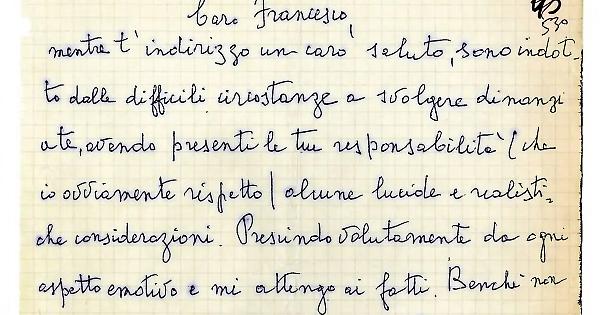 Caro Francesco,
mentre t'indirizzo un caro saluto, sono indot-
to dalle difficili circostanze a svolgere dinanzi
a te, avendo presenti le tue responsabilità (che
io ovviamente rispetto) alcune lucide e realisti-
che considerazioni. Prescindo volutamente da ogni
aspetto emotivo e mi attengo ai fatti. Benché non